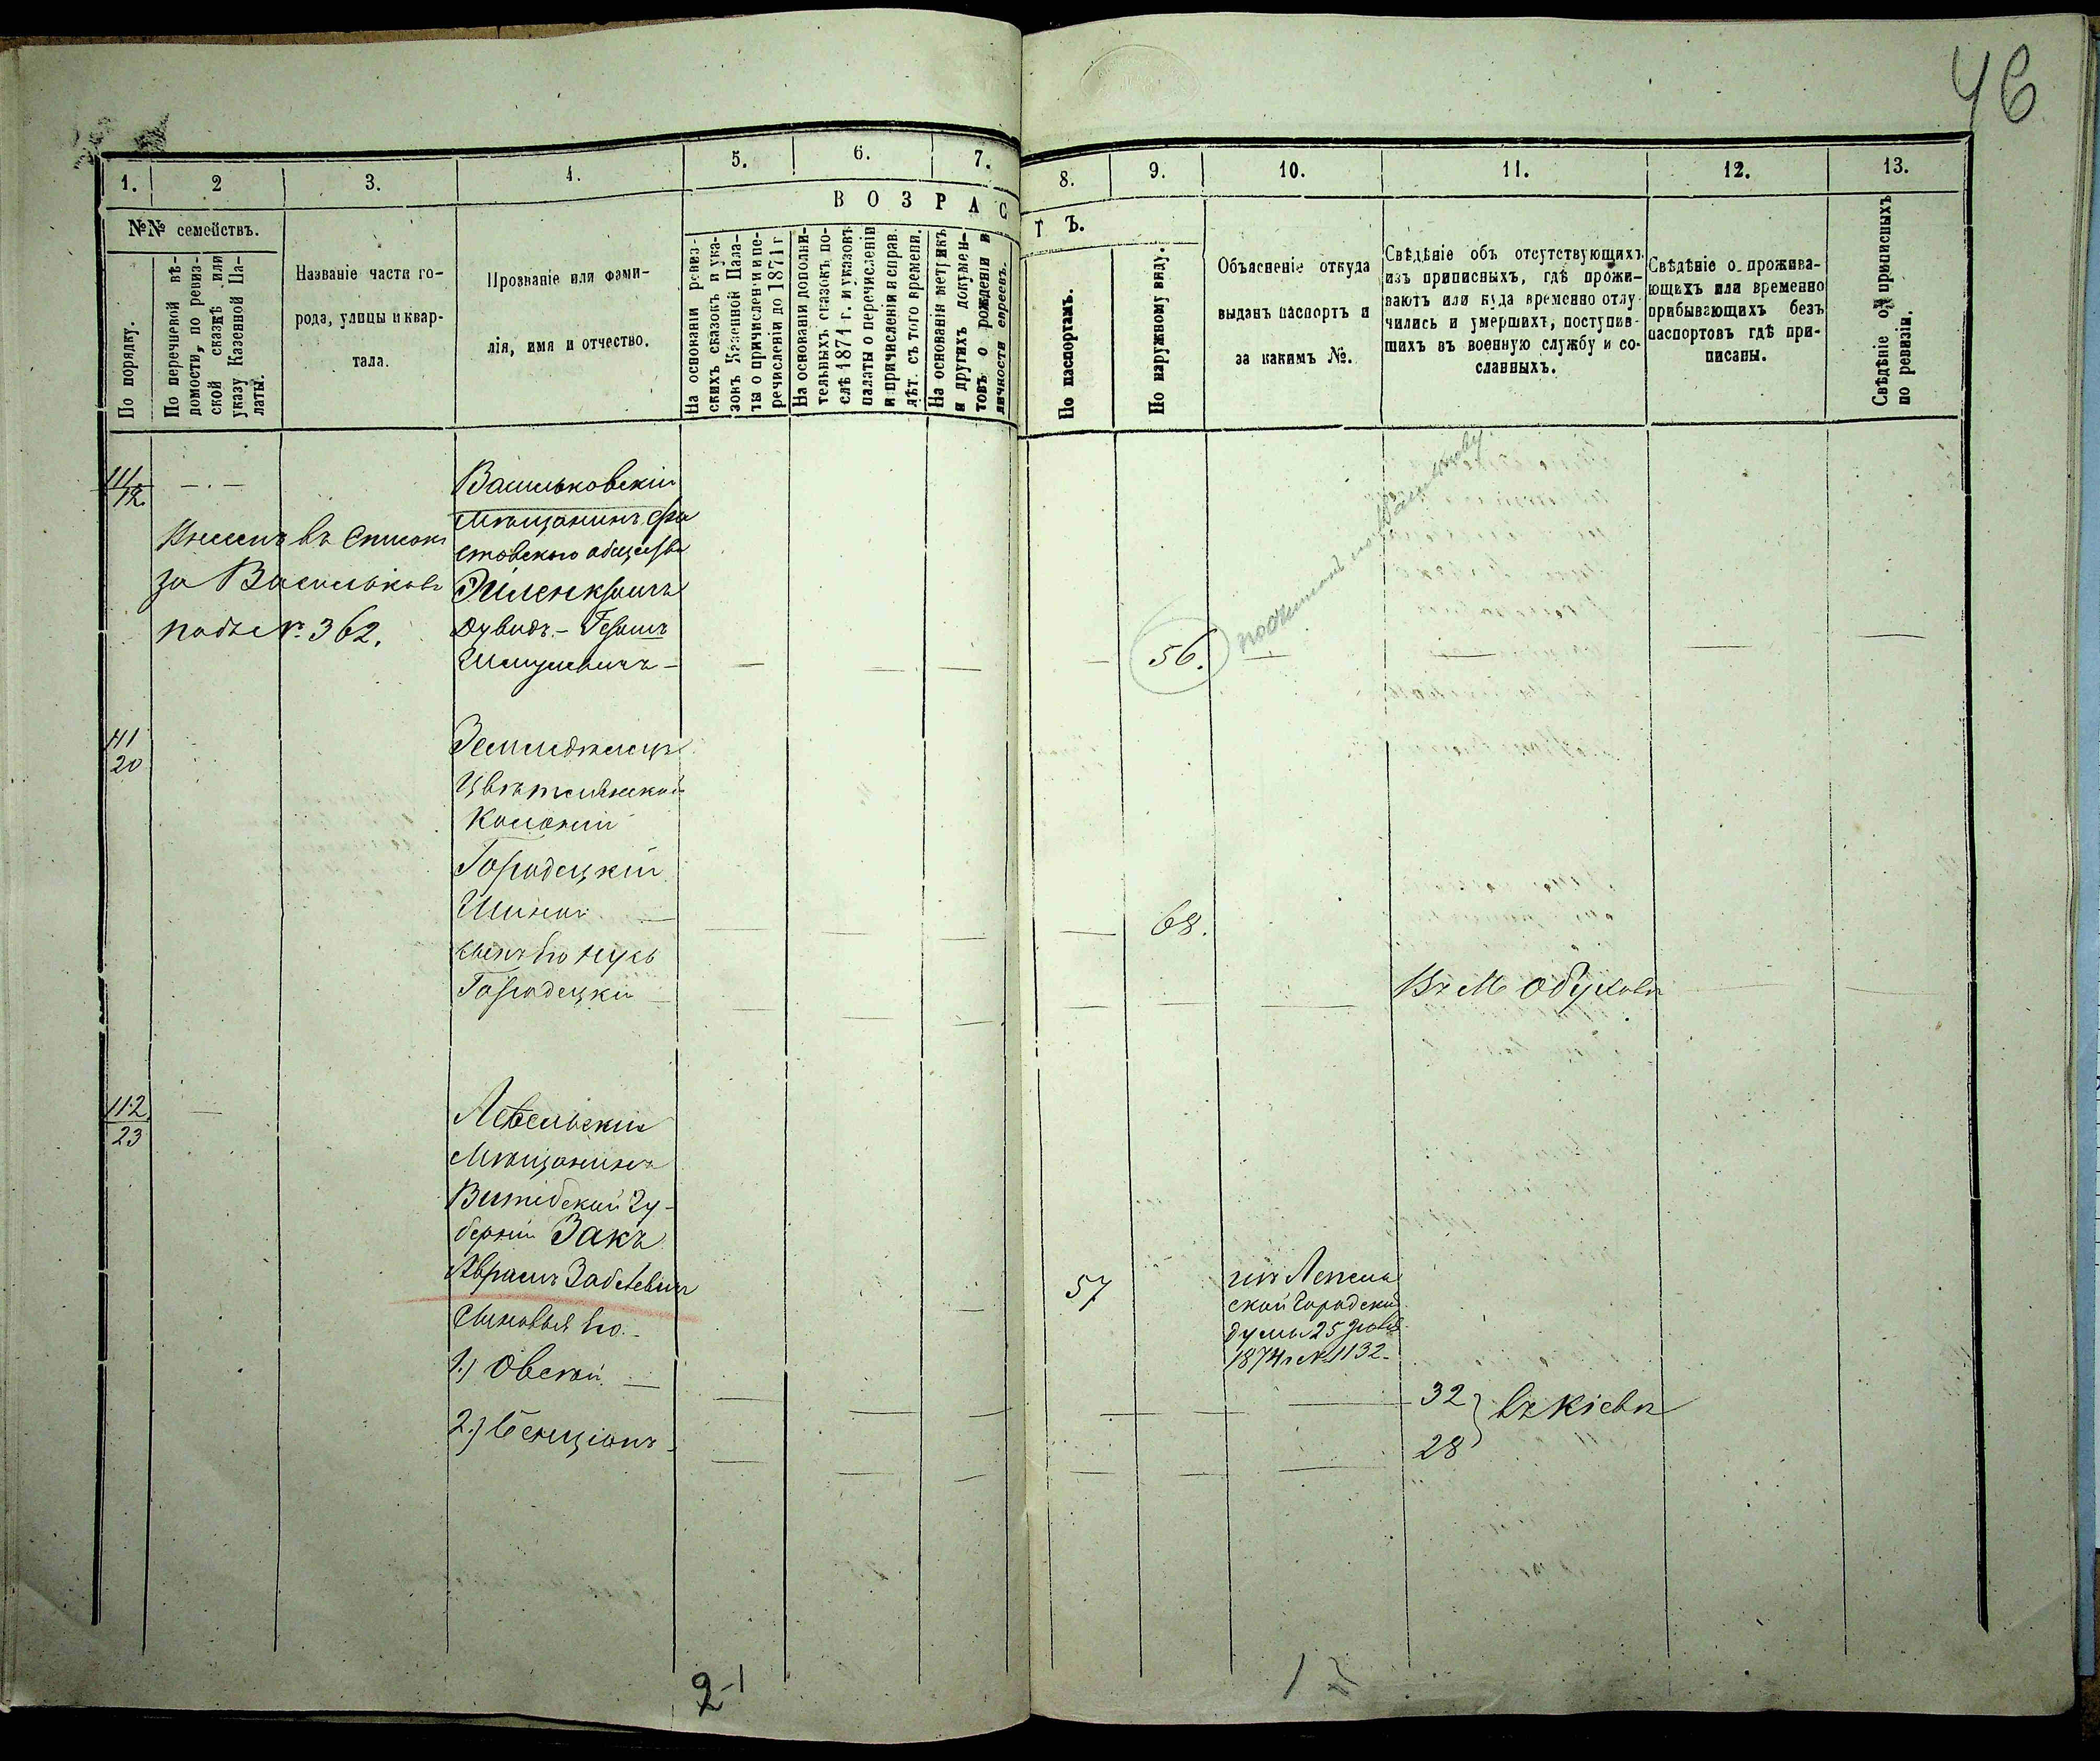 46
1.
2
3.
4.
5.
6.
7.
8.
9.
10.
11.
12.
13.
№№ семействъ.
По порядку.
По перечневой вѣ-
домости, по ревиз-
ской сказкѣ или
указу Казенной Па-
латы.
Названіе части го-
рода, улицы и квар-
тала.
Прозваніе или фами-
лія, имя и отчество.
ВОЗРАС
ТЪ.
На основаніи ревиз-
скихъ сказокъ и ука-
зовъ Казенной Пала-
ты о причисленіи и пе-
речисленіи до 1871 г
На основаніи дополни-
тельныхъ сказокъ по-
слѣ 1871 г. и указовъ
палаты о перечисленіи
и причисленіи и справ.
лѣт. съ того времени.
На основаніи метрикъ
и другихъ докумен-
товъ о рожденіи и
личности евреевъ.
По паспортамъ.
По наружному виду.
Объясненіе откуда
выданъ паспортъ и
за какимъ №.
Свѣдѣніе объ отсутствующихъ
изъ приписныхъ, гдѣ прожи-
ваютъ или куда временно отлу-
чились и умершихъ, поступив-
шихъ въ военную службу и со-
сланныхъ.
Свѣдѣніе о прожива-
ющихъ или временно
прибывающихъ безъ
паспортовъ гдѣ при-
писаны.
Свѣдѣніе о приписныхъ
по ревизіи.
111
12
Внесенъ въ Списокъ
за Васильковъ
подъ № 362.
Васильковскій
Мѣщанинъ Фа
стовскаго общества
Эйленкригъ
Дувидъ-Гершъ
Шмулевичъ
56.
по Василькову
111
20
Земледѣлецъ
Колоніи
Городецкій
Шимон
сынъ его Нусь
Городецкій
68.
Въ М Обуховѣ
112
23
Лепельскій
Мѣщанинъ
Витебской Гу-
берніи Закъ
Аврамъ
Сыновья его
1.) Овсей
2.) Бенціонъ
57
изъ Лепель
ской Городской
думы 25
1874 г № 1132
32
28
въ Кіевѣ
2-1
1